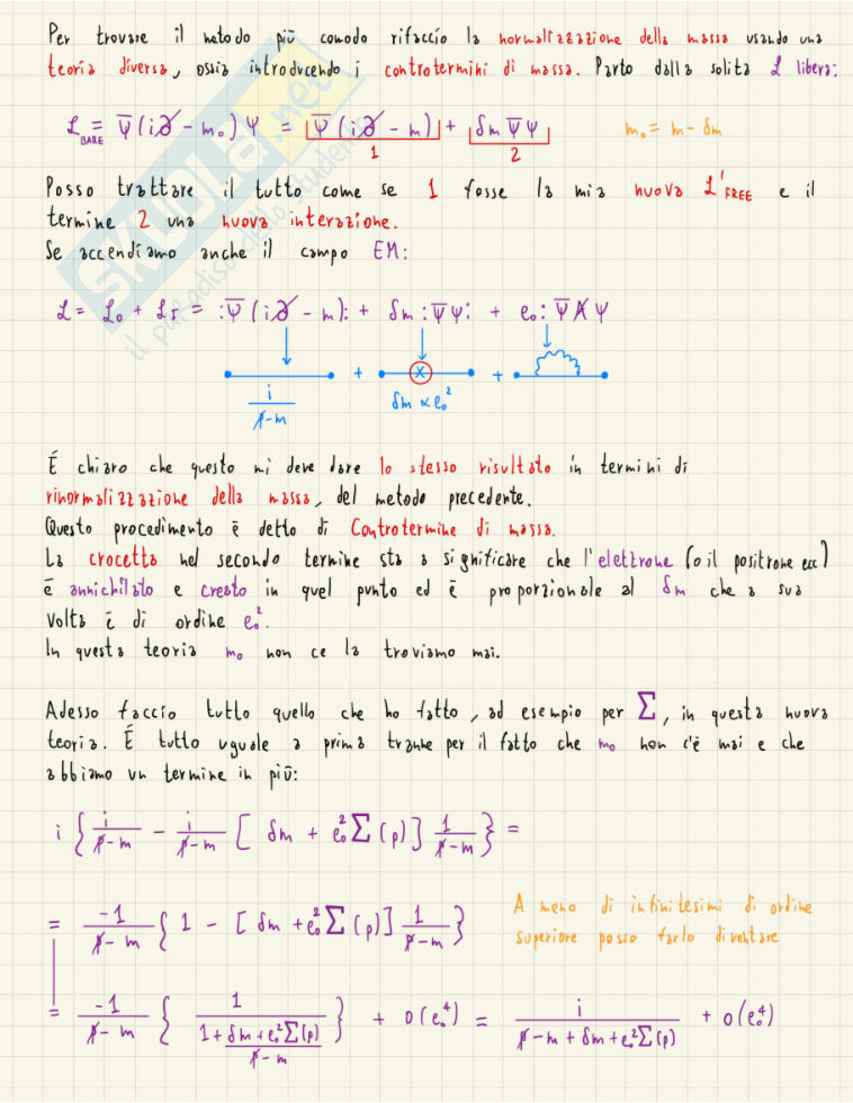 Per trovare il metodo più comodo rifaccio la normalizzazione della massa usando una
teoria diversa, ossia introducendo i controtermini di massa. Parto dalla solita ℒ libera:
ℒ_BARE = Ψ̄(i∂̸ - m₀)Ψ = Ψ̄(i∂̸ - m) + δm Ψ̄Ψ    m₀ = m - δm
1    2
Posso trattare il tutto come se 1 fosse la mia nuova ℒ'_FREE e il
termine 2 una nuova interazione.
Se accendiamo anche il campo EM:
ℒ = ℒ₀ + ℒ_I = :Ψ̄(i∂̸ - m): + δm :Ψ̄Ψ: + e₀: Ψ̄A̸Ψ
+ x +
i/(p̸-m)    δm ∝ e₀²
È chiaro che questo mi deve dare lo stesso risultato in termini di
rinormalizzazione della massa, del metodo precedente.
Questo procedimento è detto di Controtermine di massa.
La crocetta nel secondo termine sta a significare che l'elettrone (o il positrone ecc)
è annichilato e creato in quel punto ed è proporzionale al δm che a sua
volta è di ordine e₀².
In questa teoria m₀ non ce la troviamo mai.
Adesso faccio tutto quello che ho fatto, ad esempio per Σ, in questa nuova
teoria. È tutto uguale a prima tranne per il fatto che m₀ non c'è mai e che
abbiamo un termine in più:
i { i/(p̸-m) - i/(p̸-m) [ δm + e₀²Σ(p)] 1/(p̸-m) } =
= -1/(p̸-m) { 1 - [δm + e₀²Σ(p)] 1/(p̸-m) }
A meno di infinitesimi di ordine
superiore posso farlo diventare
= -1/(p̸-m) { 1/(1 + (δm + e₀²Σ(p))/(p̸-m)) } + O(e₀⁴) = i/(p̸-m + δm + e₀²Σ(p)) + o(e₀⁴)
SKUOLA.net
il paradiso dello studente